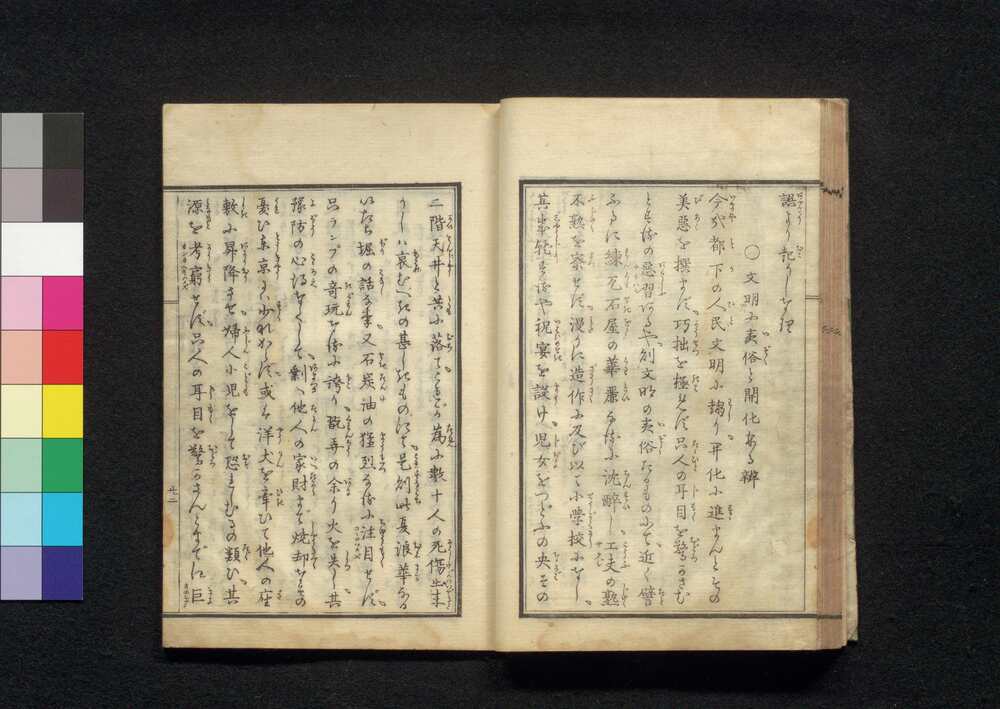 語より記しをり
○文明に夷俗と開化ある辨
今や都下の人民文明に趨り開化に進まんとその
美悪を撰まず巧拙を極めず只人の耳目を驚かさむ
とするの悪習あり是や則文明の夷俗なるものにて近く譬
ふるに煉瓦石屋の華麗なるに沈酔し工丈の熟
不熟を察せず漫りに造作に及び以て小学校となし
其卒業するや祝宴を設け児女をつどふの央その
二階天井と共に落ち為に数十人の死傷出来
しハ哀むべきの甚しきものにて是則此夏浪華なる
いたち堀の話なり又石炭油の猛烈なるに注目せず
只ランプの奇玩なるに誇り翫弄の余り火を失し其
予防の心得なくして剰へ他人の家財まで焼却するの
憂ひ東京にハ少なからず或ハ洋犬を牽ひて他人の座
敷に昇降させ婦人小児をして恐れしむるの類ひ其
源を考窮せず只人の耳目を驚かさんとまでに巨
廿二